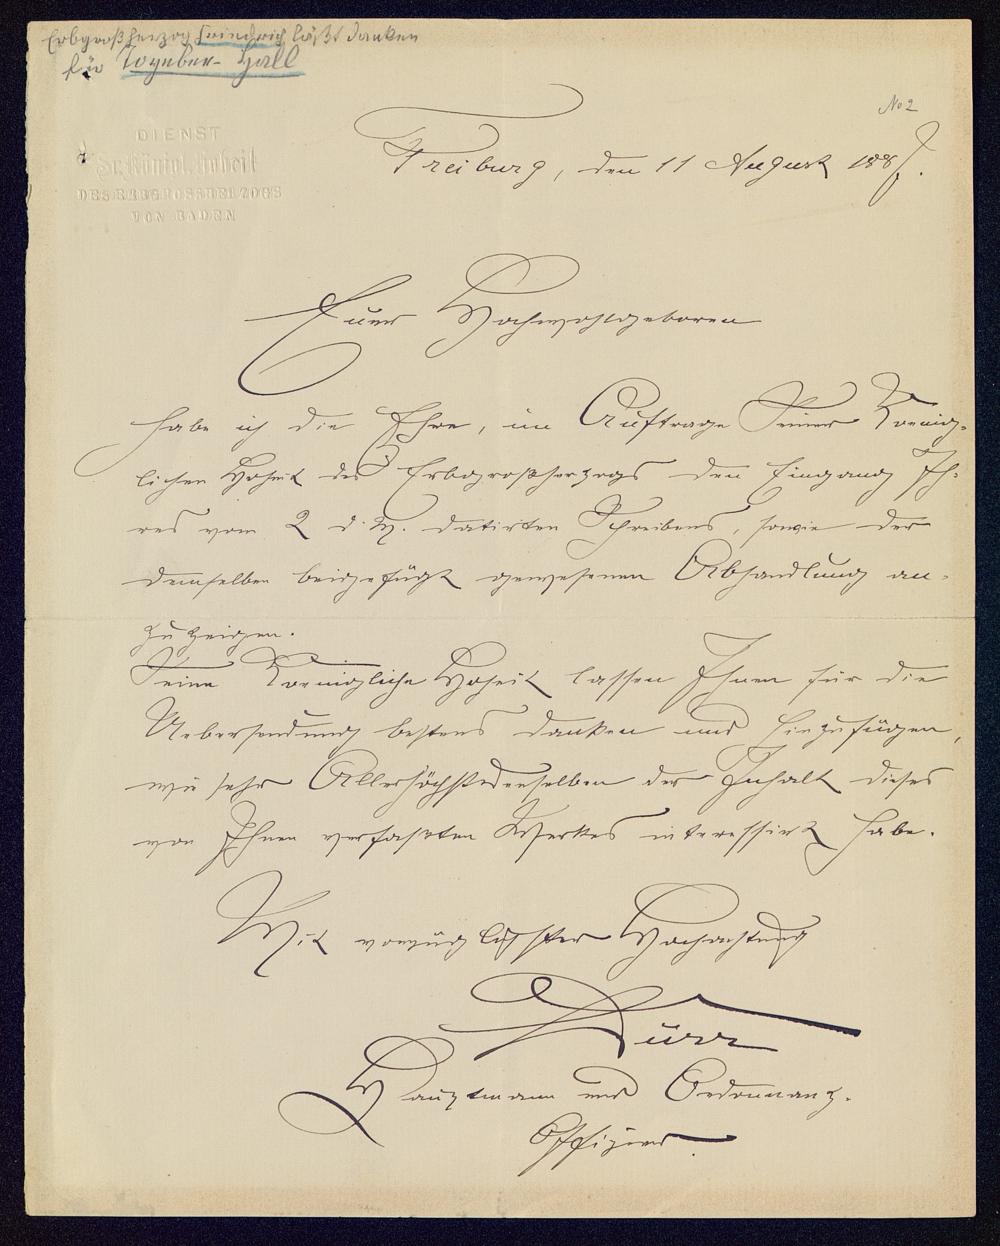 Erbgroßherzog Friedrich läßt danken
für Toynber- Hall
No 2
DIENST
Sr. Königl. Hoheit
DES ERBGROSSHERZOGS
VON BADEN
Freiburg, den 11 August 188
Euer Hochwohlgeboren
habe ich die Ehre, im Auftrage Seiner Koenig-
lichen Hoheit des Erbgroßherzogs den Eingang Ih-
res vom 2 d. M. datirten Schreibens, sowie der
demselben beigefügt gewesenen Abhandlung an-
zuzeigen.
Seine Koenigliche Hoheit lassen Ihnen für die
Uebersendung bestens danken und hinzufügen,
wie sehr Allerhöchstdenselben der Inhalt dieses
von Ihnen verfaßten Werkes interessirt habe.
Mit vorzüglichster Hochachtung
Dürr
Hauptmann und Ordonnanz-
Offizier.